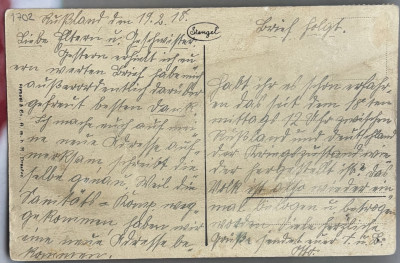 1702
Rußland den 19.2.18.
Liebe Eltern u. Geschwister
Gestern erhielt ich eu
ern werten Brief habe mich
außerordentlich darüber
gefreut besten Dank.
Ich mache euch auf mei
ne neue Adresse auf
merksam schreibt die
selbe genau. Weil die
Sanitäts-Komp weg
gekommen haben wir
eine neue Adresse be
kommen.
Stengel
Brief folgt.
Habt ihr es schon erfahr
en das seit dem 18ten
mittags 12 Uhr zwischen
Rußland und Deutschland
der Kriegszustand wie
der hergestellt ist? Das
Volk ist also wieder ein
mal belogen u. betrogen
worden. Viele herzliche
Grüße sendet euer S. u. B.